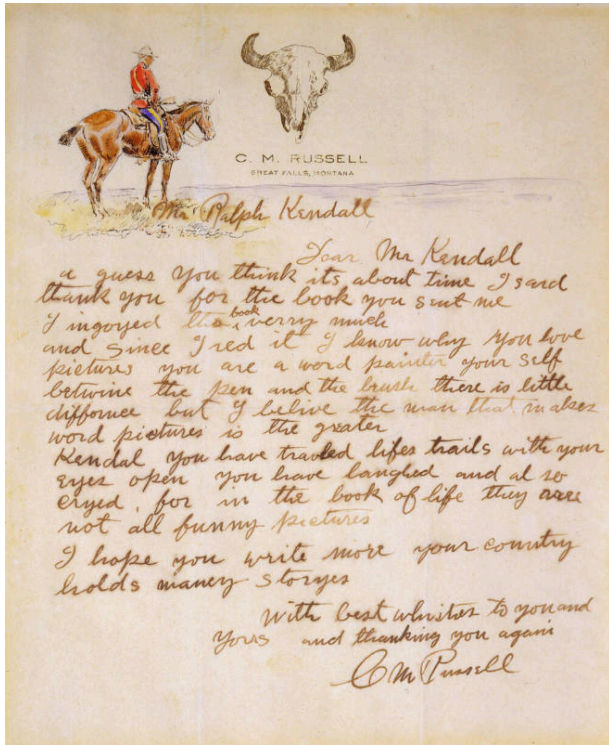 C. M. RUSSELL
GREAT FALLS, MONTANA
Mr Ralph Kendall
Dear Mr Kendall
a guess you think its about time I sard
thank you for the book you sent me
I ingoyed the book verry much
and since I red it I know why you love
pictures you are a word painter your self
betwine the pen and the brush there is little
differnce but I belive the man that makes
word pictures is the greater
Kendal you have travled lifes trails with your
eyes open you have laughed and al so
cryed, for in the book of life they are
not all funny pictures
I hope you write more your country
holds maney storyes
With best whishes to you and
yors and thanking you again
C M Russell